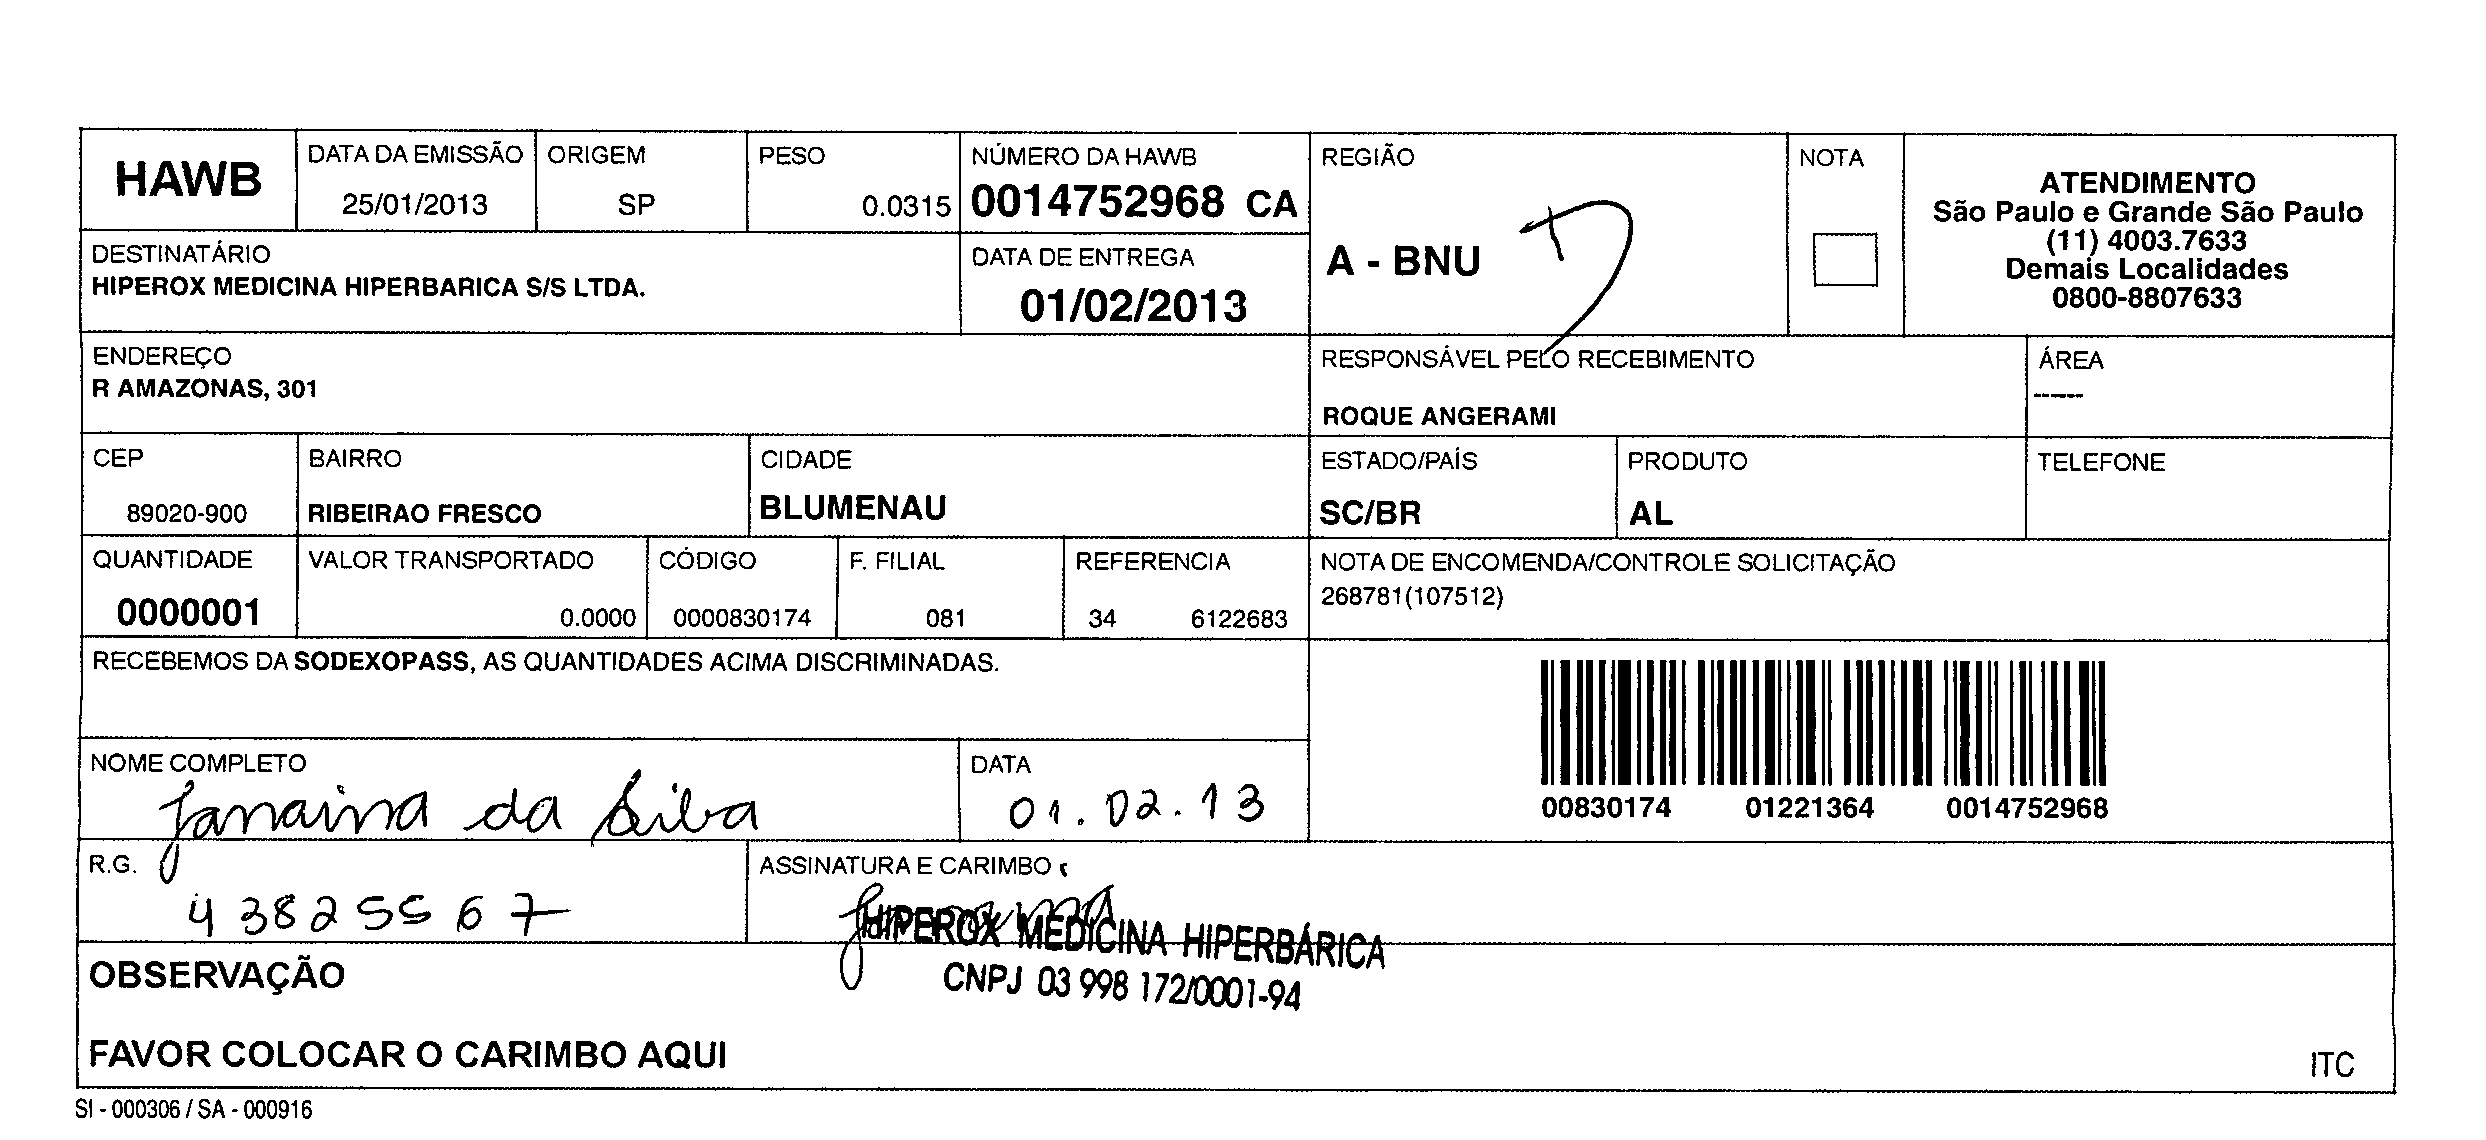 HAWB
DATA DA EMISSÃO
25/01/2013
ORIGEM
SP
PESO
0.0315
NÚMERO DA HAWB
0014752968 CA
REGIÃO
A - BNU
NOTA
ATENDIMENTO
São Paulo e Grande São Paulo
(11) 4003.7633
Demais Localidades
0800-8807633
DESTINATÁRIO
HIPEROX MEDICINA HIPERBARICA S/S LTDA.
DATA DE ENTREGA
01/02/2013
ENDEREÇO
R AMAZONAS, 301
RESPONSÁVEL PELO RECEBIMENTO
ROQUE ANGERAMI
ÁREA
------
CEP
89020-900
BAIRRO
RIBEIRAO FRESCO
CIDADE
BLUMENAU
ESTADO/PAÍS
SC/BR
PRODUTO
AL
TELEFONE
QUANTIDADE
0000001
VALOR TRANSPORTADO
0.0000
CÓDIGO
0000830174
F. FILIAL
081
REFERENCIA
34 6122683
NOTA DE ENCOMENDA/CONTROLE SOLICITAÇÃO
268781(107512)
RECEBEMOS DA SODEXOPASS, AS QUANTIDADES ACIMA DISCRIMINADAS.
00830174 01221364 0014752968
NOME COMPLETO
Janaina da Silva
DATA
01.02.13
R.G.
43825567
ASSINATURA E CARIMBO
Janaina
HIPEROX MEDICINA HIPERBÁRICA
CNPJ 03 998 172/0001-94
OBSERVAÇÃO
FAVOR COLOCAR O CARIMBO AQUI
ITC
SI - 000306 / SA - 000916